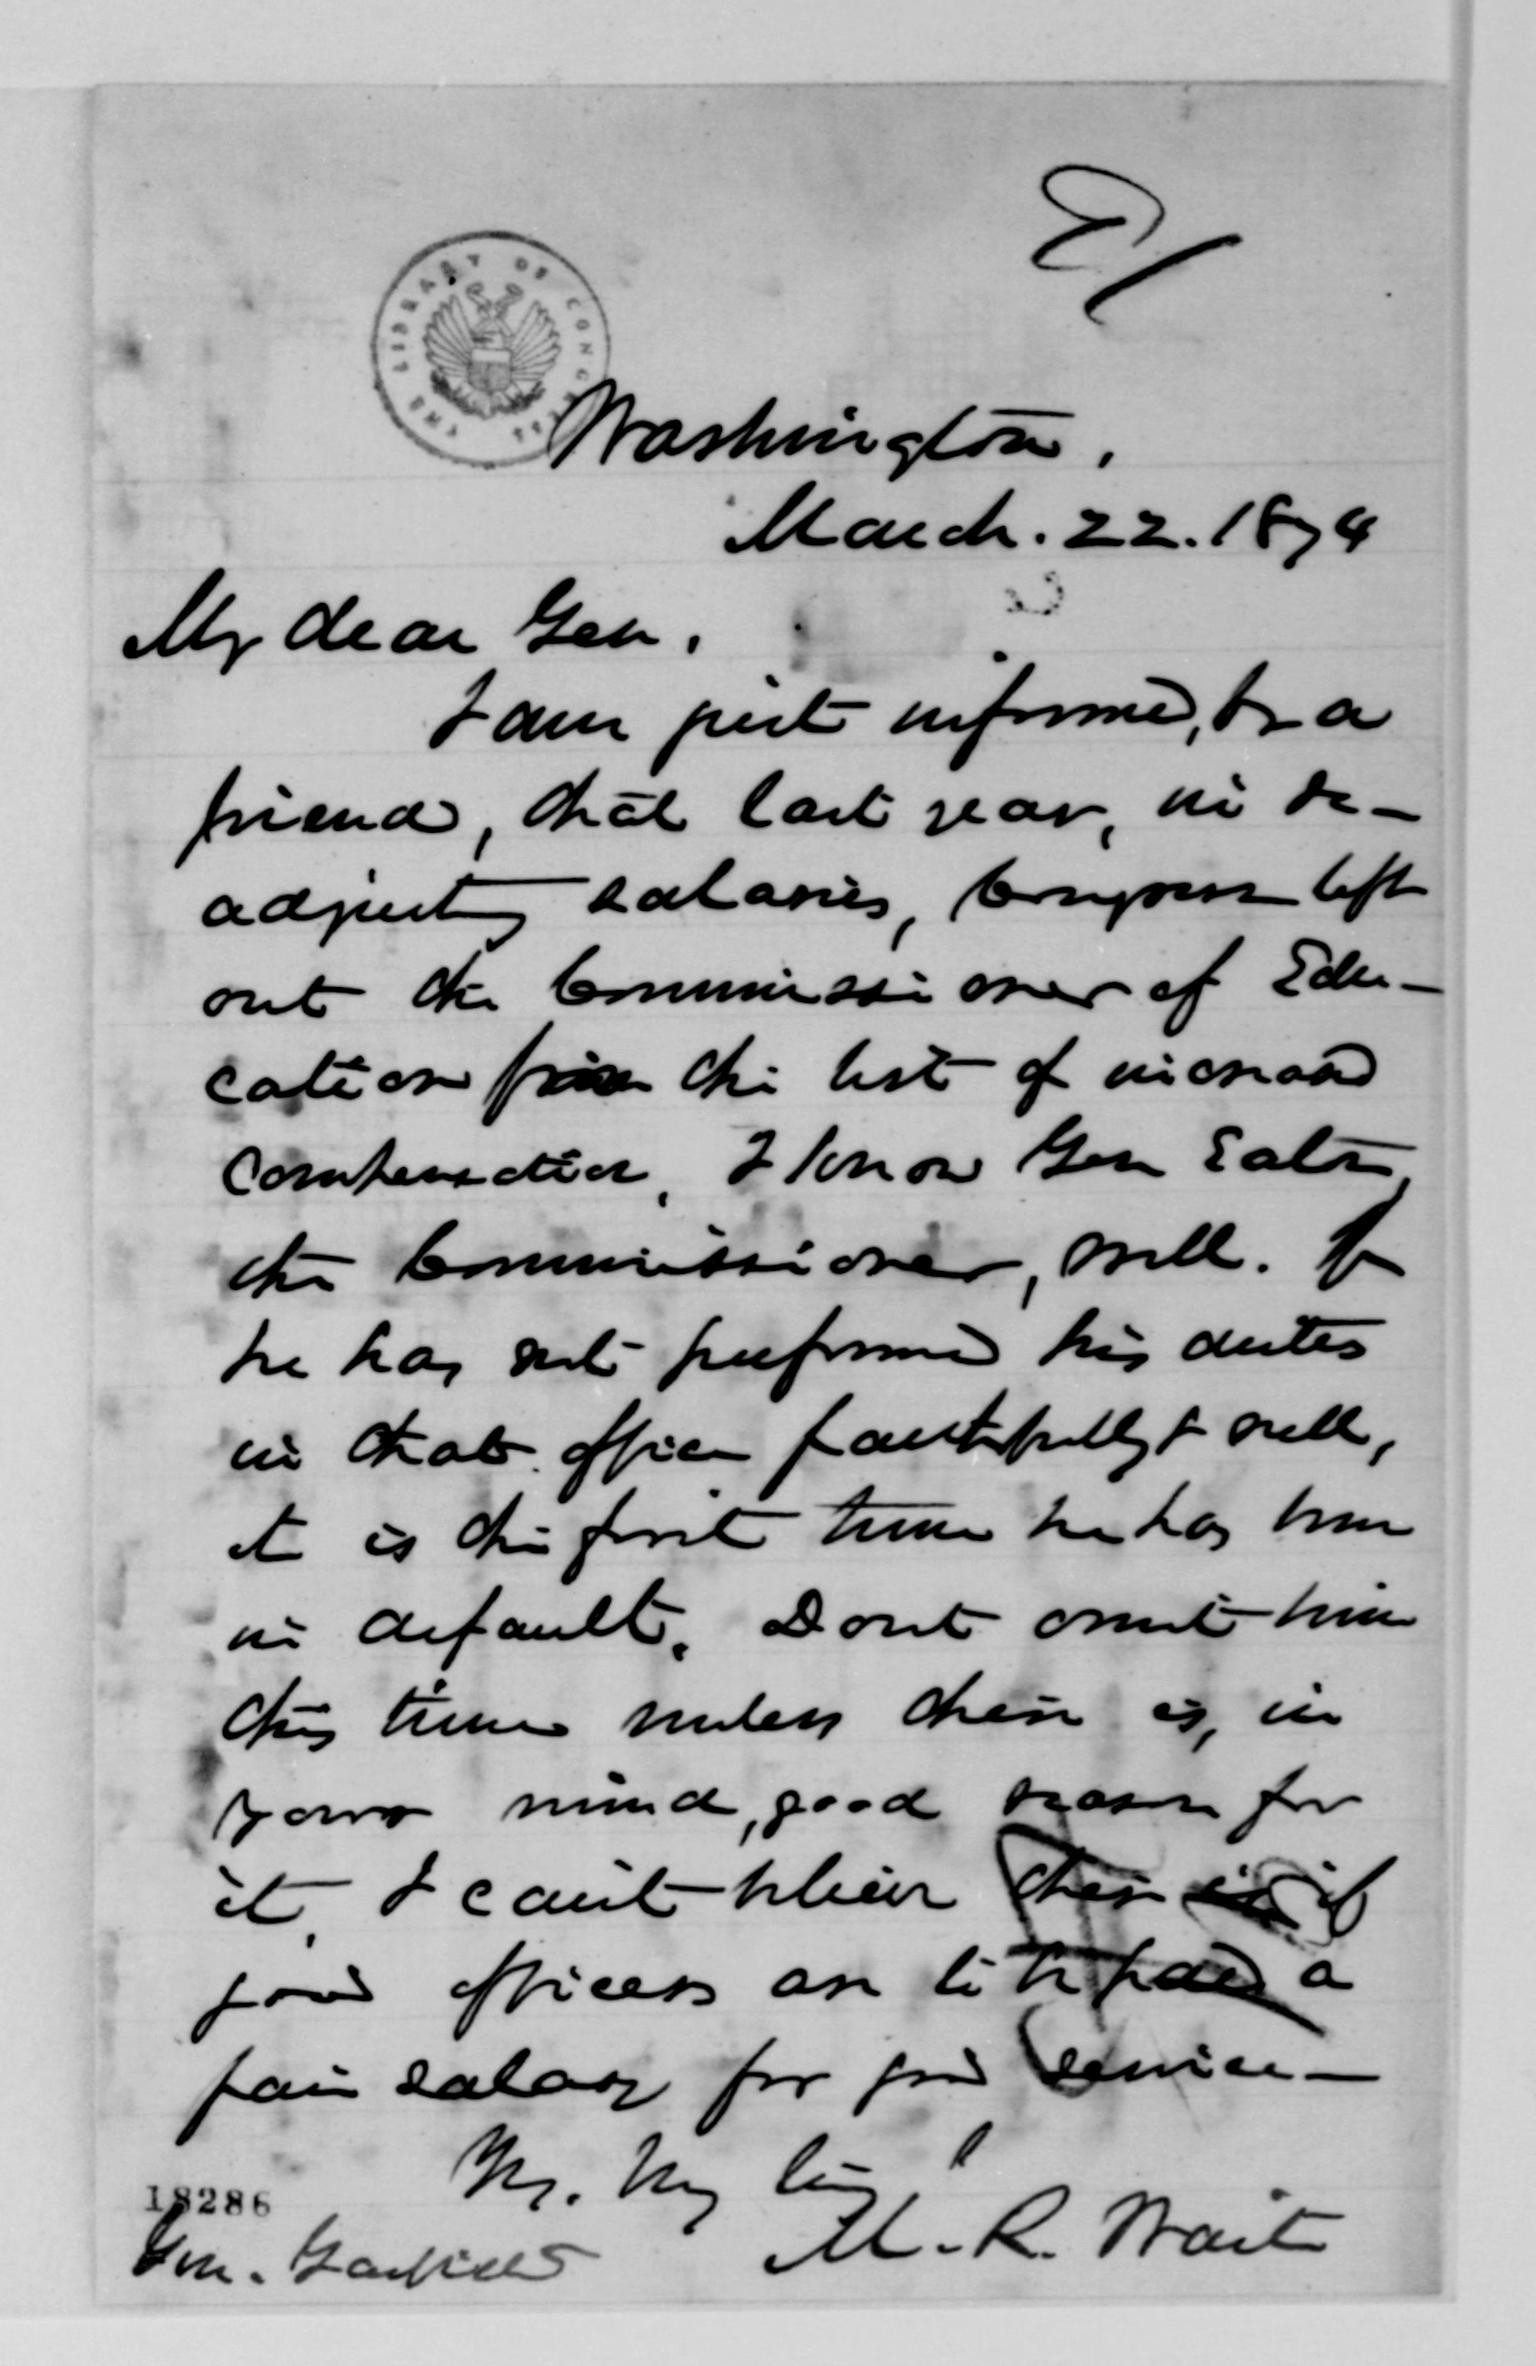 E/
THE LIBRARY OF CONGRESS
Washington,
March. 22. 1874
My dear Gen.
I am just informed, by a
friend, that last year, in re-
adjusting salaries, Congress left
out the Commissioner of Edu-
cation from the list of increased
compensation. I know Gen Eaton,
the Commissioner, well. If
he has not performed his duties
in that office faithfully & well,
it is the first time he has been
in default. Dont omit him
this time unless there is, in
your mind, good reason for
it. I cant believe there is if
good officers are to be paid a
fair salary for good service—
Yrs. Truly
M. R. Waite
18286
Gen. Garfield